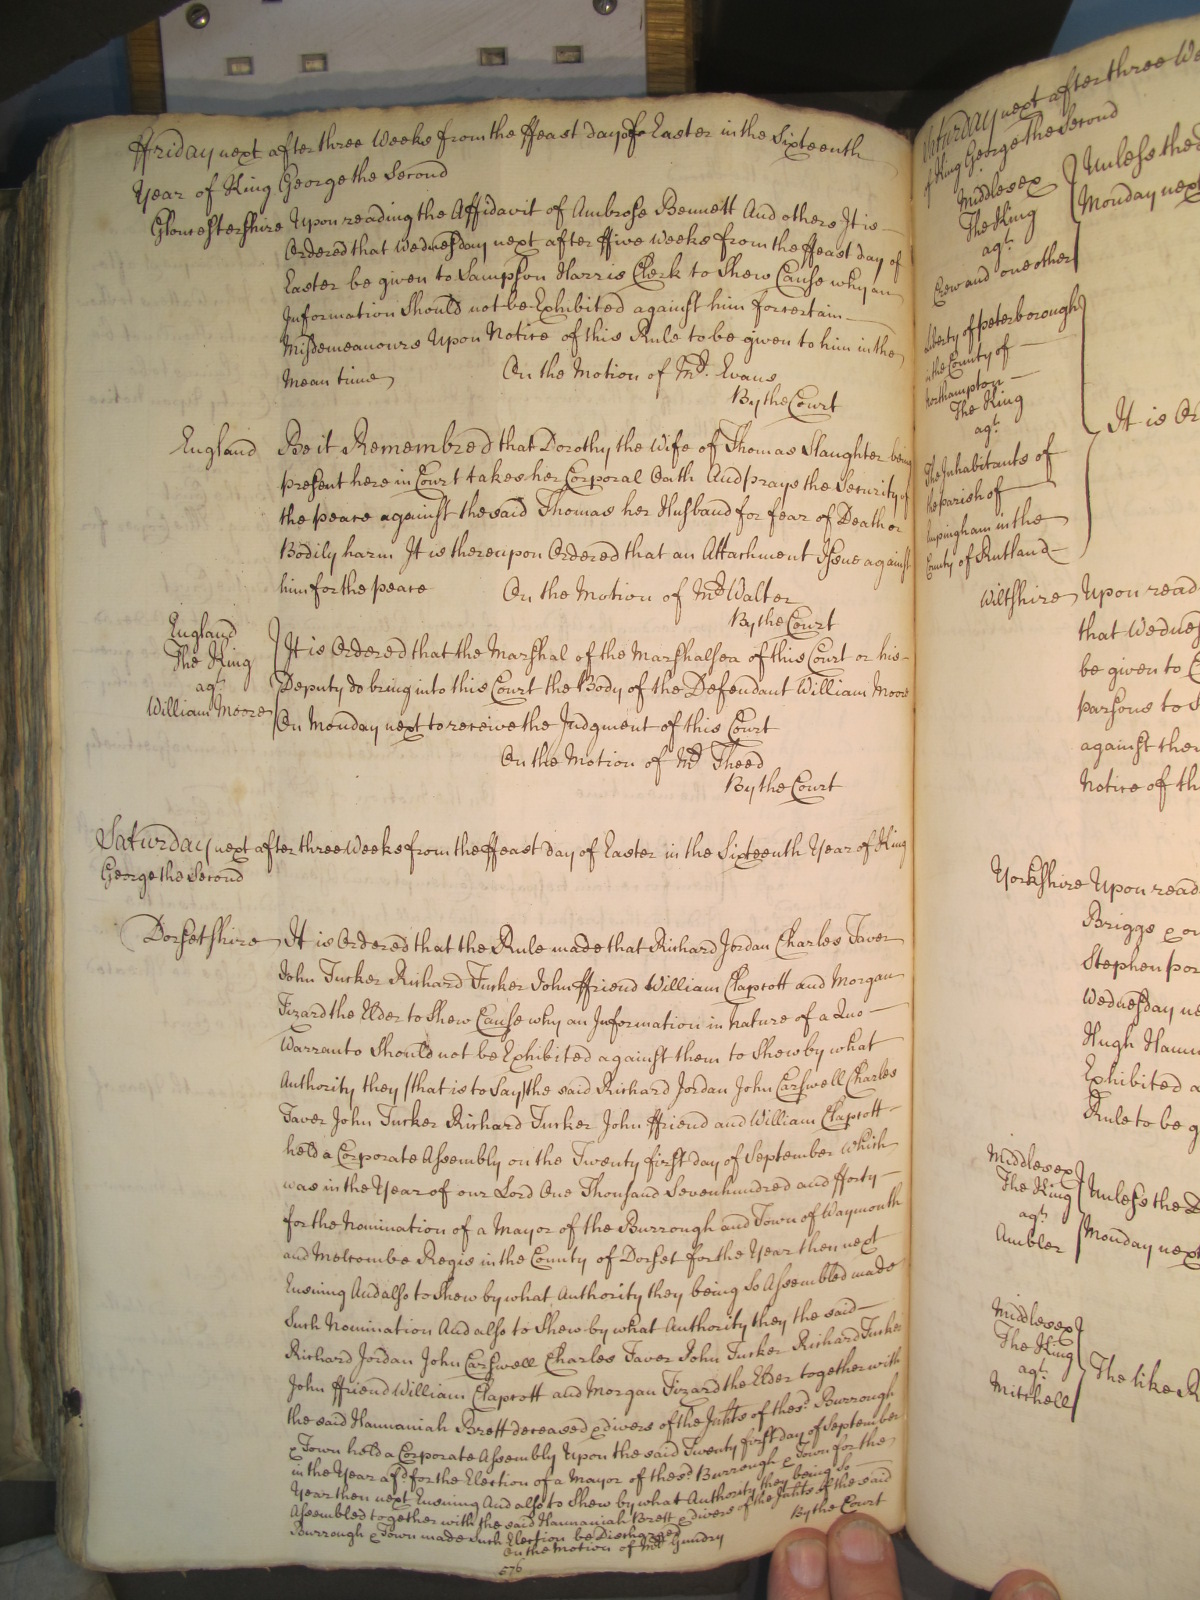 ffriday next after three Weeks from the ffeast day of Easter in the Sixteenth
Year of King George the Second
Gloucestershire Upon reading the Affidavit of Ambrose Bennett And others It is
Ordered that Wednesday next after ffive Weeks from the ffeast day of
Easter be given to Sampson Harris Clerk to Shew Cause why an
Information Should not be Exhibited against him for certain
Misdemeanours Upon Notice of this Rule to be given to him in the
mean time
On the Motion of Mr. Evans
By the Court
England Be it Remembred that Dorothy the Wife of Thomas Slaughter being
present here in Court takes her Corporal Oath And prays the Security of
the peace against the said Thomas her Husband for fear of Death or
Bodily harm It is thereupon Ordered that an Attachment Issue against
him for the peace
On the Motion of Mr Walter
By the Court
England
The King
agt.
William Moore
It is Ordered that the Marshal of the Marshalsea of this Court or his
Deputy do bring into this Court the Body of the Defendant William Moore
On Monday next to receive the Judgment of this Court
On the Motion of Mr Theed
By the Court
Saturday next after three Weeks from the ffeast day of Easter in the Sixteenth Year of King
George the Second
Dorsetshire It is Ordered that the Rule made that Richard Jordan Charles Taver
John Tucker Richard Tucker John ffriend William Claprott and Morgan
Tizard the Elder to Shew Cause why an Information in Nature of a Quo
Warranto Should not be Exhibited against them to Shew by what
Authority they (that is to Say) the said Richard Jordan John Carswell Charles
Taver John Tucker Richard Tucker John ffriend and William Claprott
held a Corporate Assembly on the Twenty first day of September which
was in the Year of our Lord One Thousand Seven hundred and fforty
for the Nomination of a Mayor of the Burrough and Town of Waymouth
and Melcombe Regis in the County of Dorset for the Year then next
Ensuing And also to Shew by what Authority they being So Assembled made
Such Nomination And also to Shew by what Authority they the said
Richard Jordan John Carswell Charles Taver John Tucker Richard Tucker
John ffriend William Claprott and Morgan Tizard the Elder together with
the said Hannaniah Brett deceased & divers of the Inhts of the sd. Burrough
& Town held a Corporate Assembly Upon the said Twenty first day of September
in the Year afsd for the Election of a Mayor of the sd. Burrough & Town for the
Year then next Ensuing And also to Shew by what Authority they being So
Assembled together with the said Hannaniah Brett & divers of the Inhts of the said
Burrough & Town made Such Election be Discharged
On the Motion of Mr Gundry
By the Court
576
Saturday next after three We
of King George the Second
Middlesex
The King
agt.
Crew and one other
Unless the D
Monday next
Liberty of Peterborough
in the County of
Northampton
The King
agt.
The Inhabitants of
the parish of
in the
County of Rutland
It is Or
Wiltshire Upon read
that Wednes
be given to
parsons to S
against the
Notice of th
Yorkshire Upon read
Briggs & o
Stephen por
Wednesday ne
Hugh Hann
Exhibited a
Rule to be g
Middlesex
The King
agt.
Ambler
Unless the D
Monday next
Middlesex
The King
agt.
Mitchell
The like R